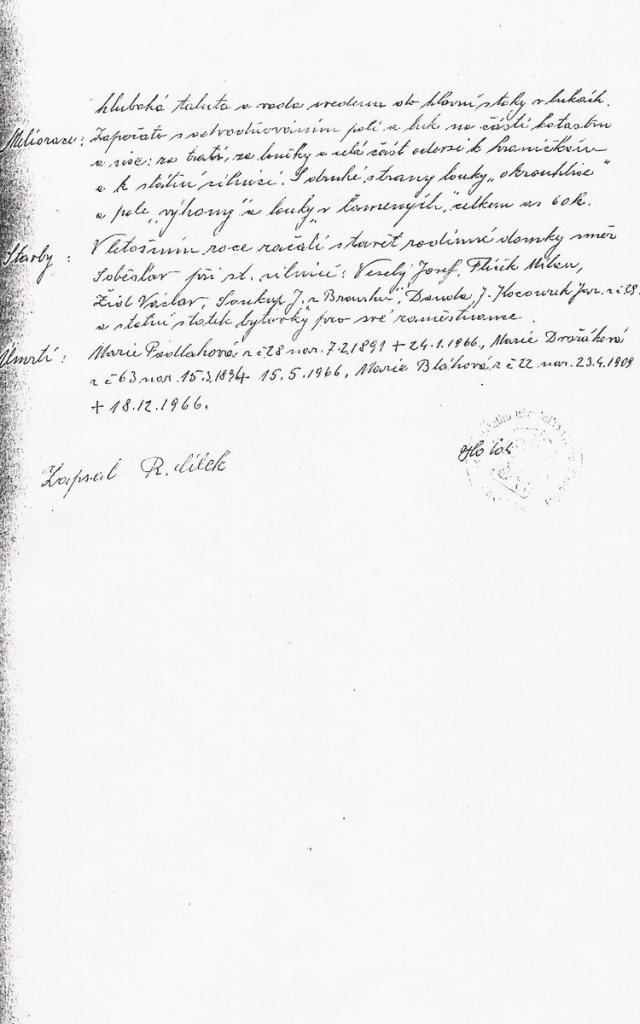 hluboká taluta a voda svedena do hlavní stoky v lukách.
Meliorace: Započato s odvodňováním polí a luk na části katastru
a sice: za tratí, za loučky a celá část odersi k hraničkám
a k státní silnici. S druhé strany louky „okrouhlice"
a pole „výhony" a louky „v kamenných", celkem as 60 h.
Stavby: V letošním roce začali stavět rodinné domky směr
Soběslav při st. silnici: Veselý Josef, Flíček Milan,
Žid Václav, Soukup J. z Brandu, Danda J. Kocourek Jar. z č 38.
a státní statek „bytovky" pro své zaměstnance.
Úmrtí: Marie Podlahová z č 28 nar. 7.2.1891 + 24.1.1966, Marie Dvořáková
z č 63 nar. 15.3.1894 + 15.5.1966, Marie Bláhová z č 22 nar. 23.4.1909
+ 18.12.1966.
Zapsal R. Jílek